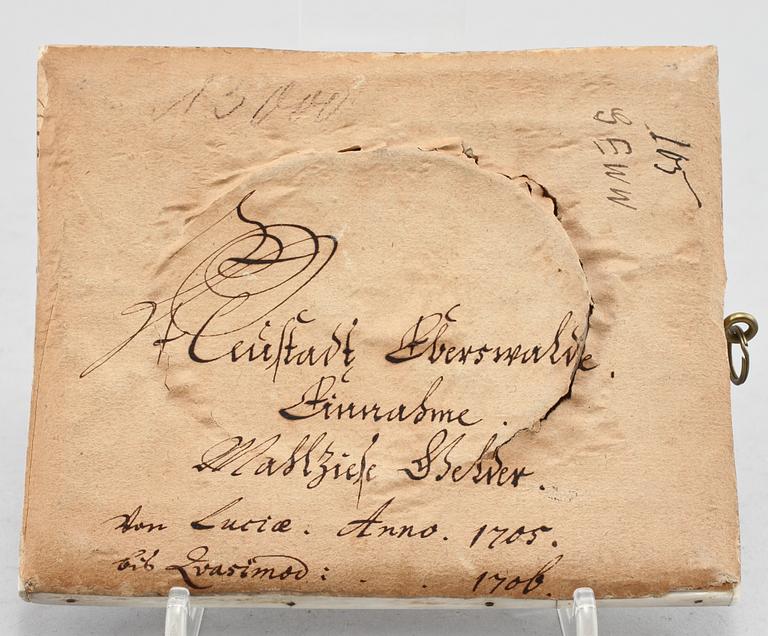 165
Neustadt Eberswalde.
Einnahme.
Mahlziese Gelder.
Von Luciæ. Anno. 1705.
bis Qvasimod: . . 1706.